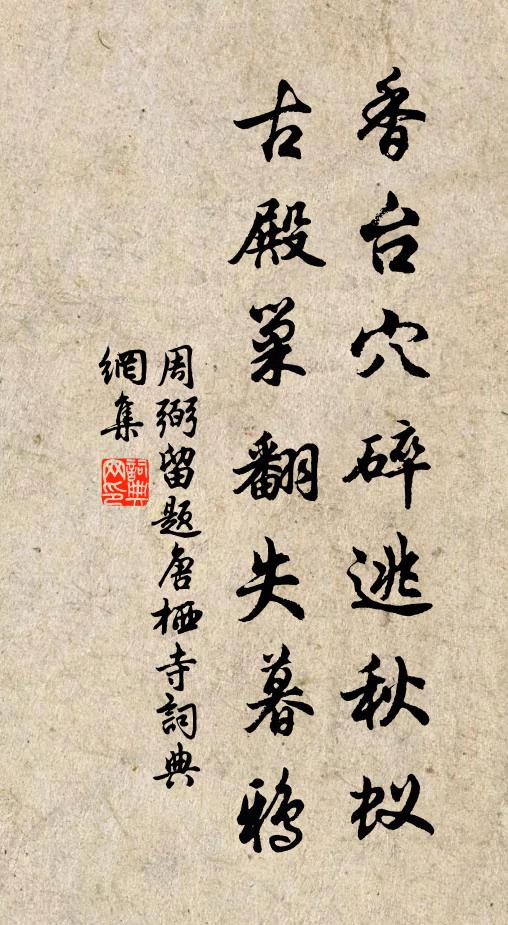 香台穴碎逃秋蚁
古殿巢翻失暮鸦
周弼留题唐栖寺詞典
網集
詞典网印